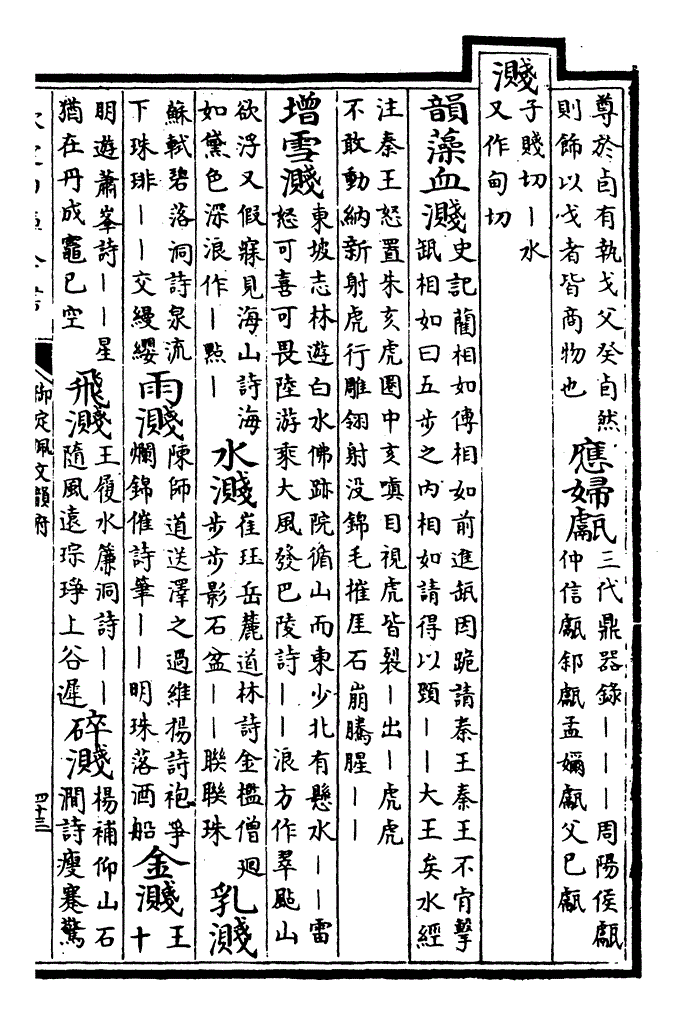 尊於卣有執戈父癸卣然
則飾以戈者皆商物也
應婦甗
三代鼎器錄｜｜｜周陽侯甗
仲信甗郘甗孟嬭甗父己甗
濺
子賤切｜水
又作甸切
韻藻血濺
史記藺相如傳相如前進缻因跪請秦王秦王不肯擊
缻相如曰五步之内相如請得以頸｜｜大王矣水經
注秦王怒置朱亥虎圈中亥嗔目視虎眥裂｜出｜虎虎
不敢動納新射虎行雕翎射没錦毛摧厓石崩騰腥｜｜
增雪濺
東坡志林遊白水佛跡院循山而東少北有懸水｜｜雷
怒可喜可畏陸游乘大風發巴陵詩｜｜浪方作翠點山
欲浮又假寐見海山詩海
如黛色深浪作｜點｜
水濺
崔珏岳麓道林詩金檻僧廻
步步影石盆｜｜聯聯珠
乳濺
蘇軾碧落洞詩泉流
下珠琲｜｜交縵纓
雨濺
陳師道送澤之過維楊詩袍爭
爛錦催詩筆｜｜明珠落酒船
金濺
王
十
明遊蕭峯詩｜｜星
猶在丹成竈已空
飛濺
王履水簾洞詩｜｜
隨風遠琮琤上谷遲
碎濺
楊補仰山石
澗詩瘦蹇驚
御定佩文韻府
四十三